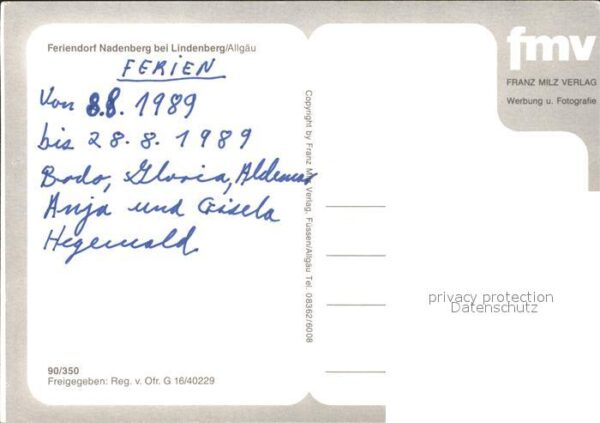 Feriendorf Nadenberg bei Lindenberg/Allgäu
FERIEN
Von 8.8. 1989
bis 28.8.1989
Bodo, Gloria, Aldemar
Anja und Gisela
Hegewald
90/350
Freigegeben: Reg. v. Ofr. G 16/40229
Copyright by Franz Milz Verlag, Füssen/Allgäu Tel. 08362/6008
fmv
FRANZ MILZ VERLAG
Werbung u. Fotografie
privacy protection
Datenschutz